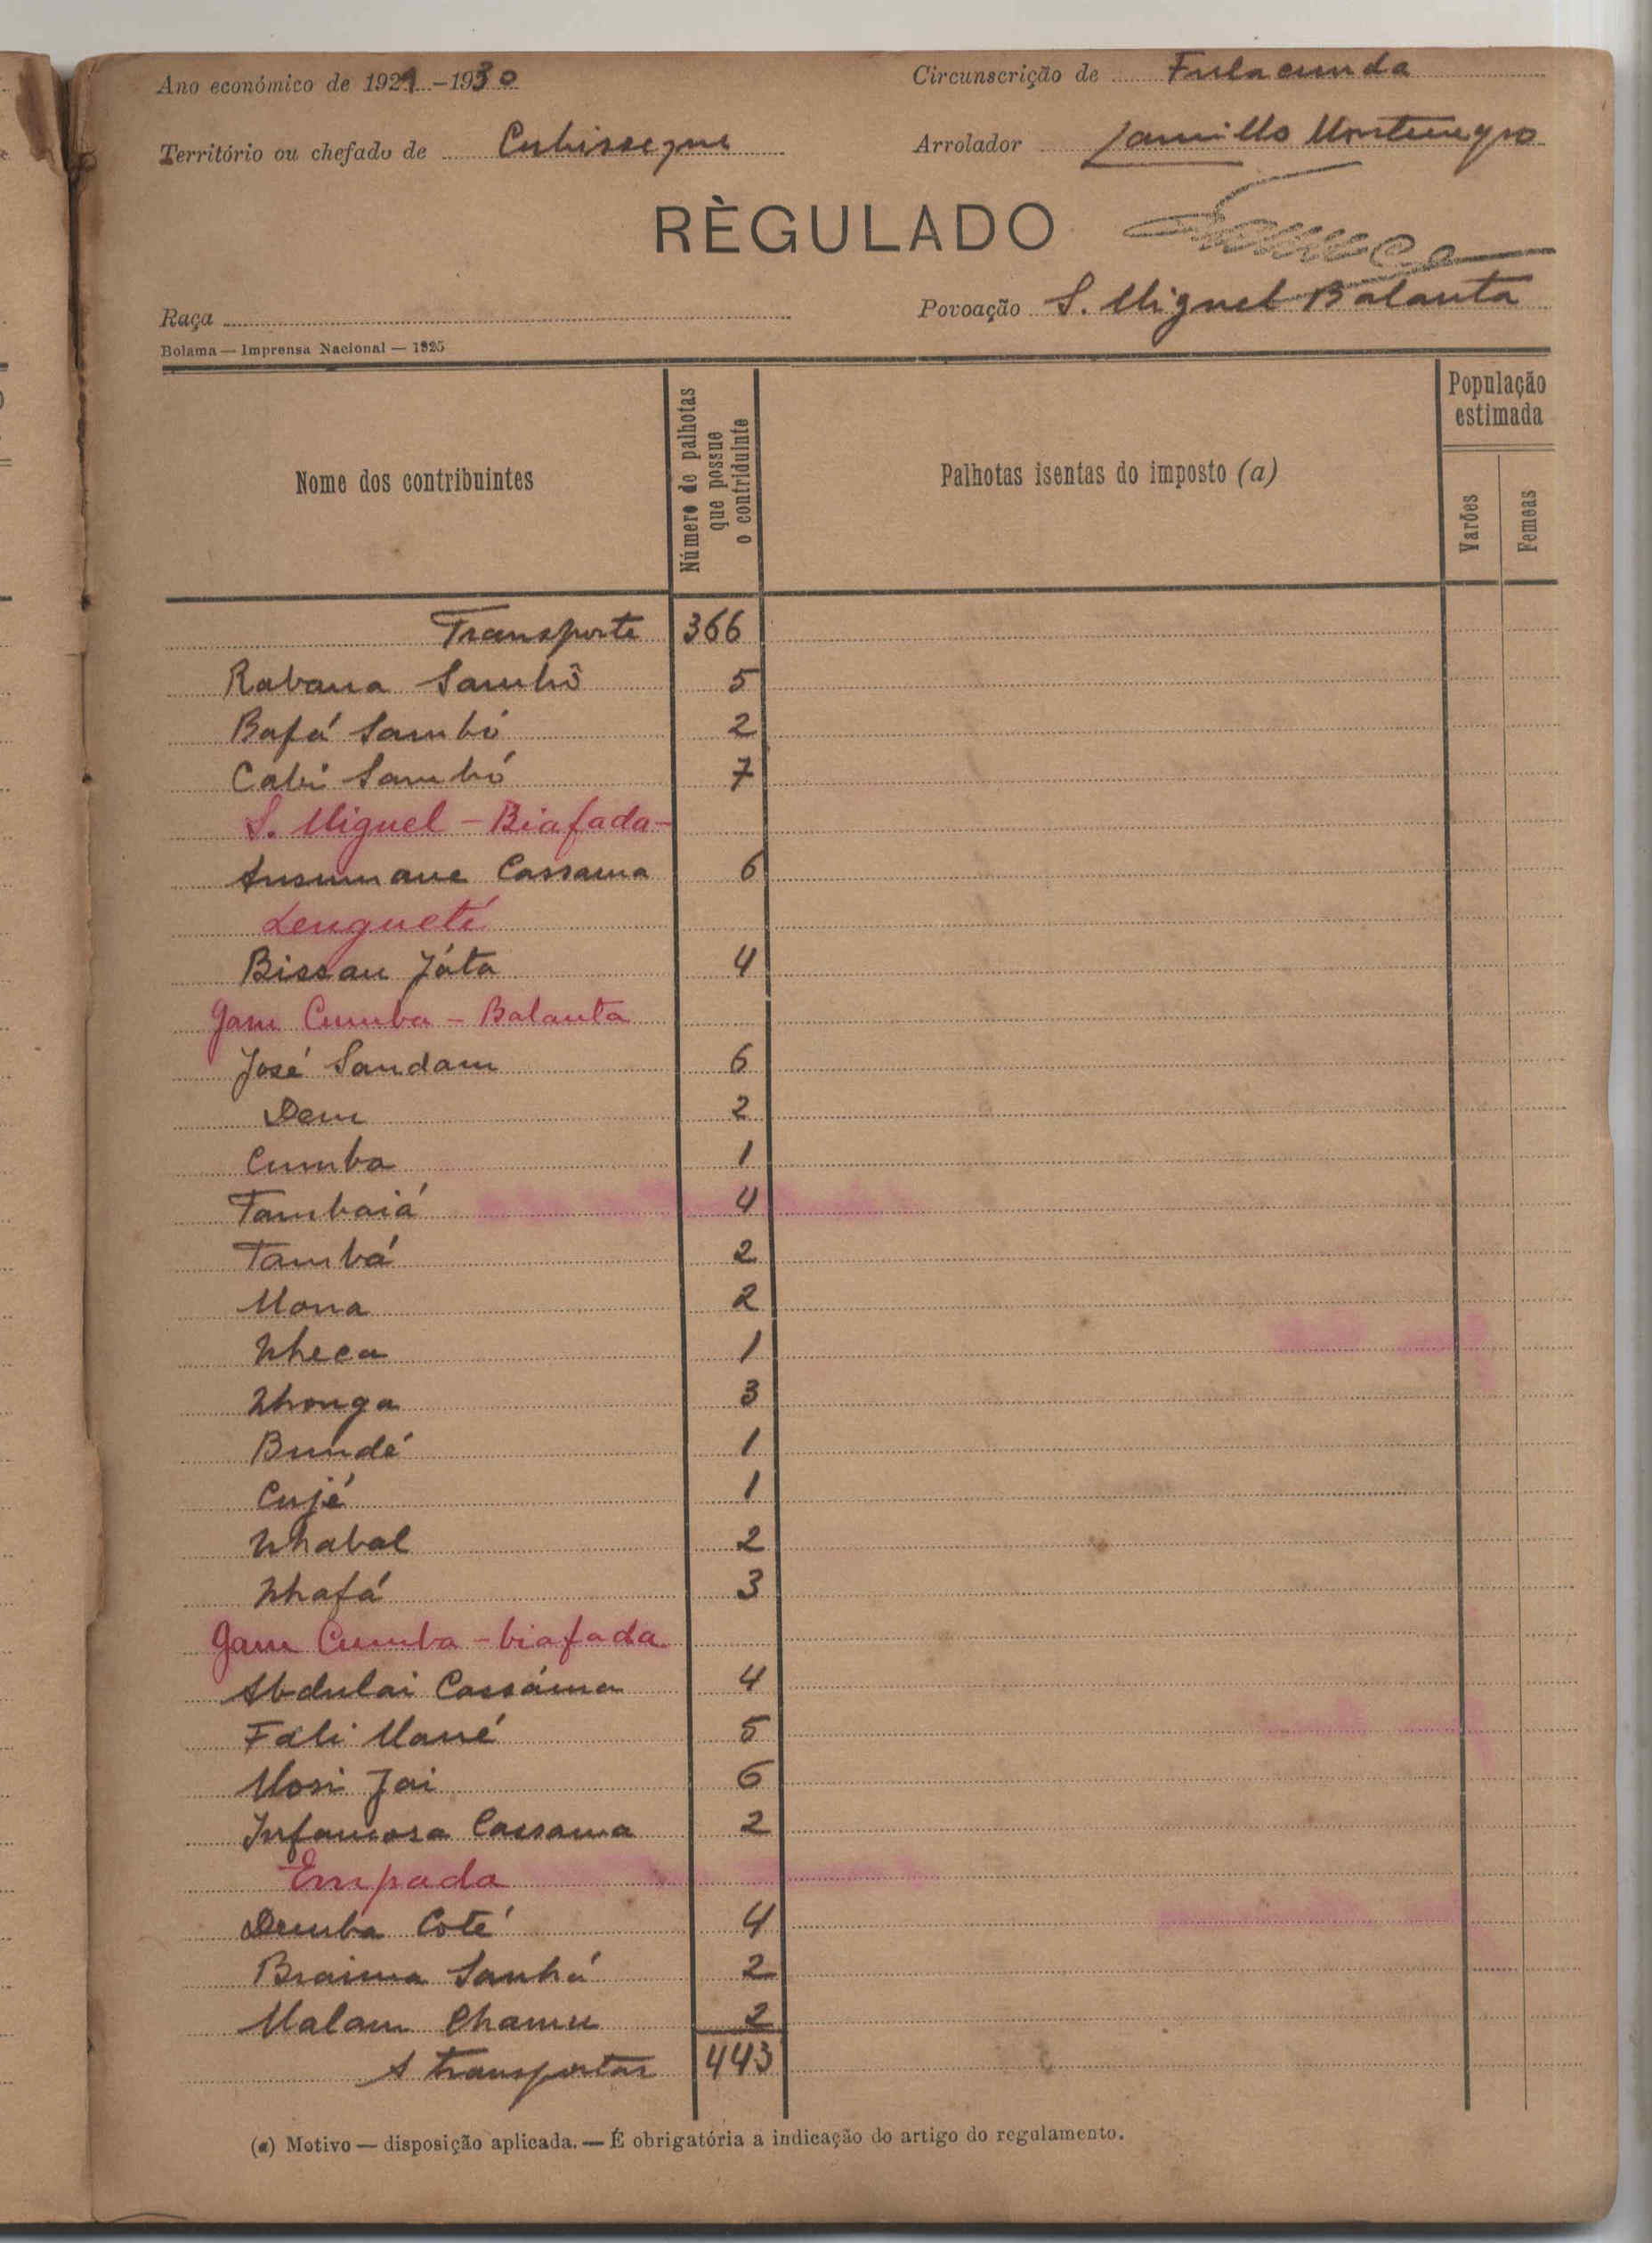 Ano económico de 1929-1930
Circunscrição de Fulacunda
Território ou chefado de Cubisseque
Arrolador Camillo Montenegro
RÈGULADO
Povoação S. Miguel Balanta
Raça
Bolama — Imprensa Nacional — 1925
Nome dos contribuintes
Número de palhotas que possue o contriduinte
Palhotas isentas do imposto (a)
População estimada
Varões
Femeas
Transporte 366
Rabana Sambô 5
Bafá Sambó 2
Cabi Sambó 7
S. Miguel - Biafada -
Ansumane Cassama 6
Lengueté
Bissau Játa 4
Gam Cumba - Balanta
José Sandam 6
Dem 2
Cumba 1
Tambaiá 4
Tambá 2
Mona 2
Nheca 1
Nhonga 3
Bundé 1
Cujé 1
Nhabal 2
Nhafá 3
Gam Cumba - biafada
Abdulai Cassáma 4
Fáli Mané 5
Mosi Jai 6
Infamosa Cassama 2
Empada
Demba Coté 4
Braima Sanhá 2
Malam Chamu 2
A transportar 443
(a) Motivo — disposição aplicada. — É obrigatória a indicação do artigo do regulamento.